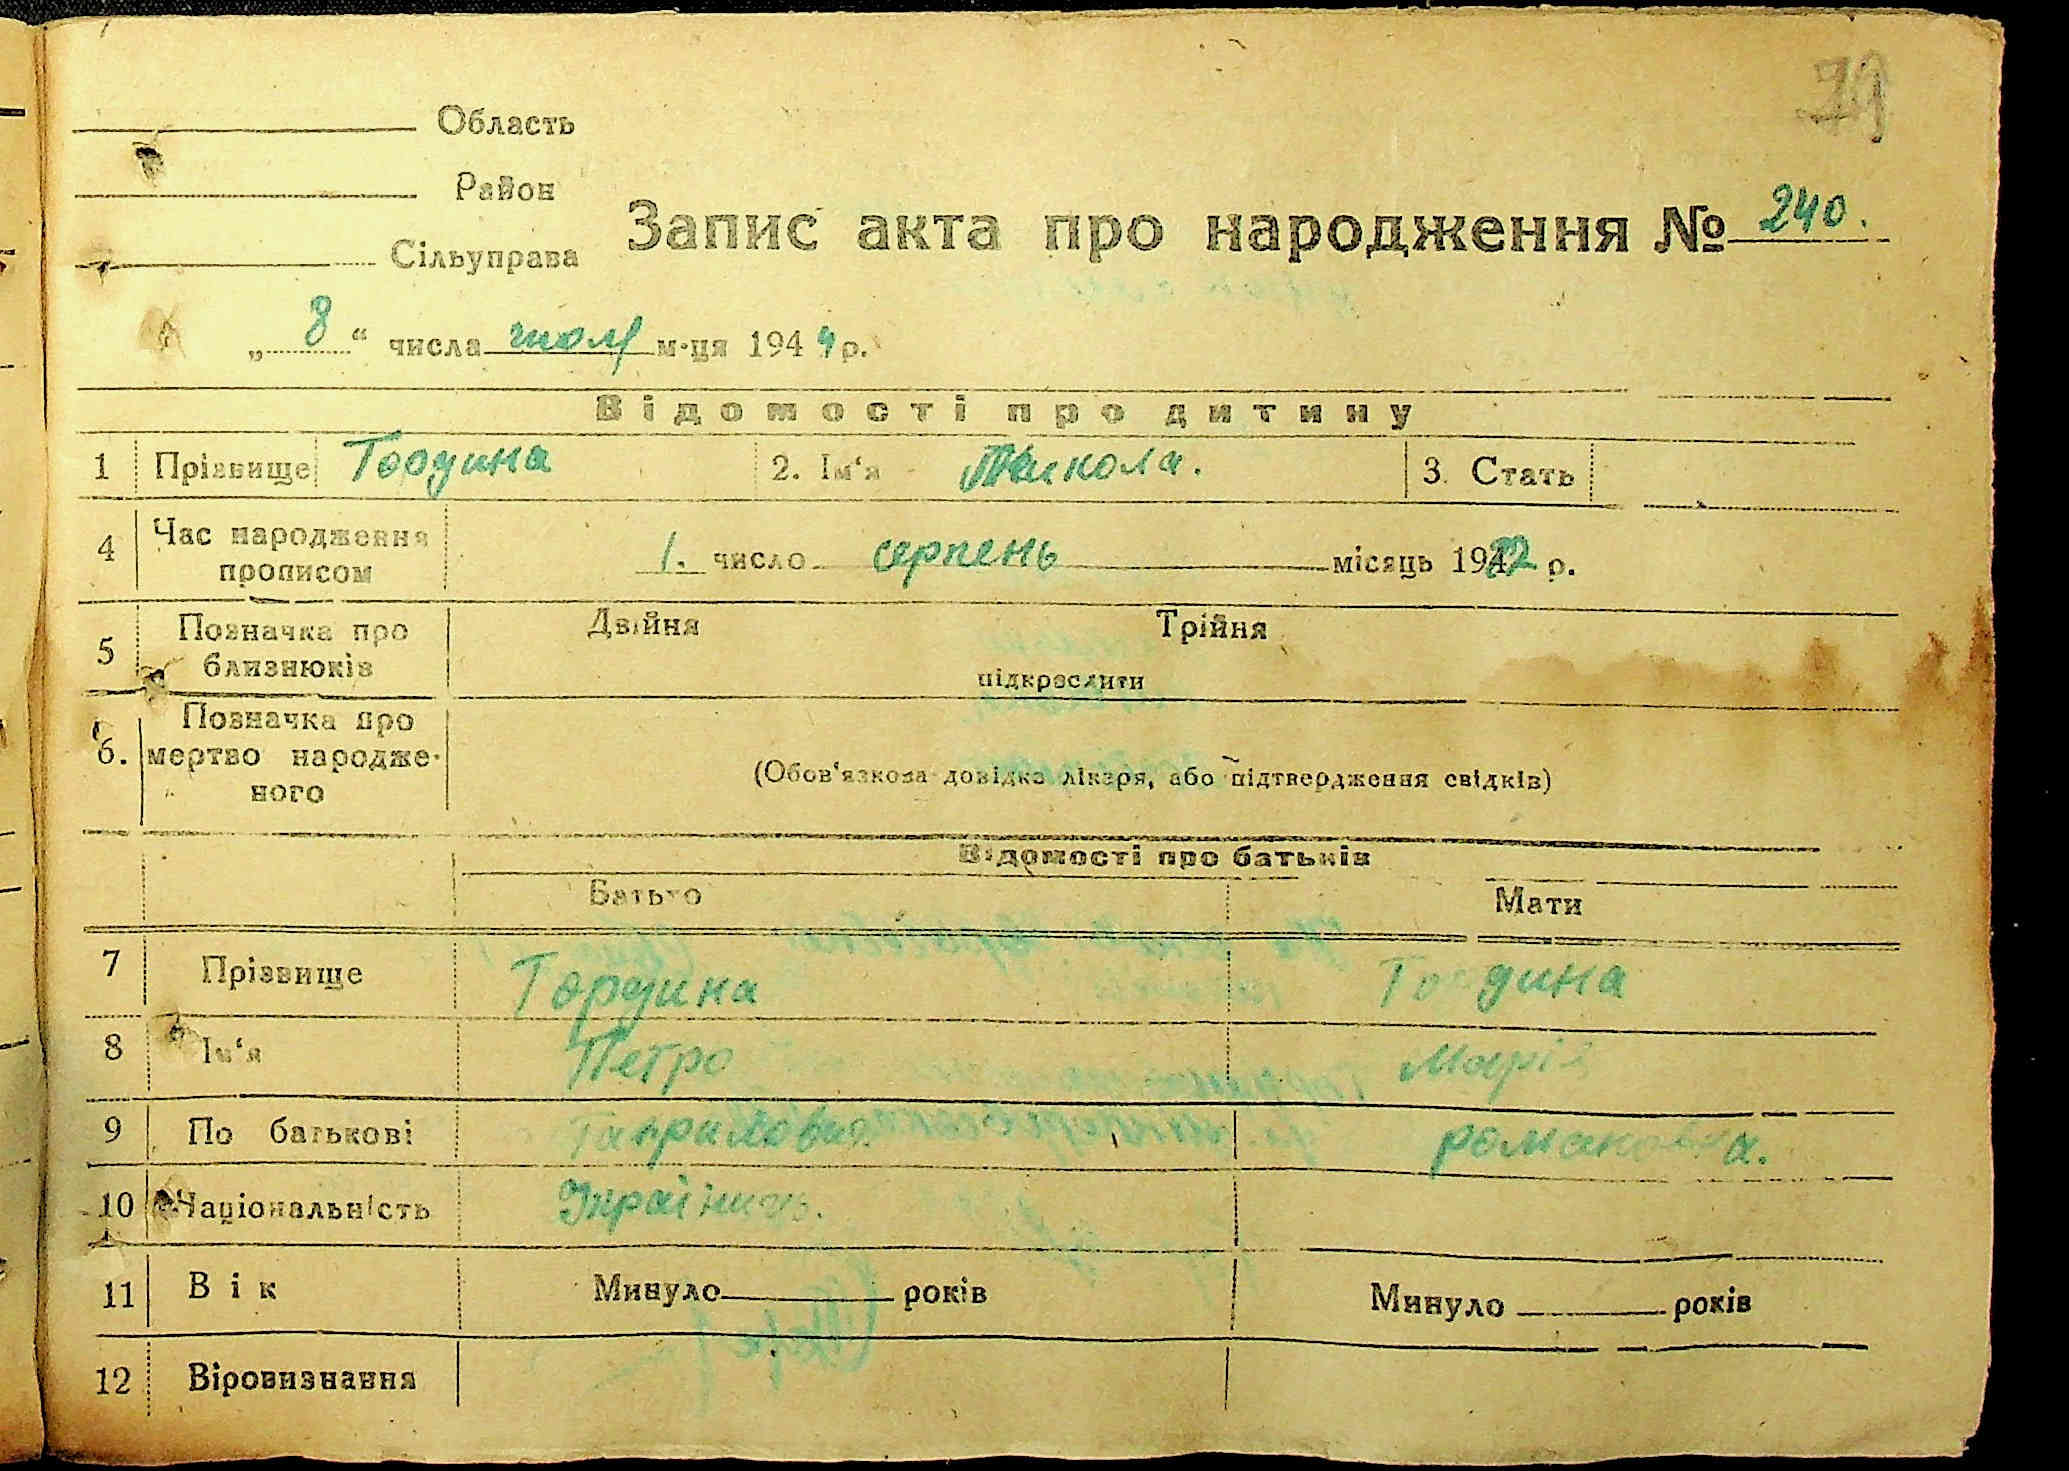 79
Область
Район
Сільуправа
Запис акта про народження № 240.
„ 8 “ числа июля м-ця 1944 р.
Відомості про дитину
1 Прізвище Гордина 2. Ім‘я Микола. 3. Стать
4 Час народження прописом 1. число серпень місяць 1922 р.
5 Позначка про близнюків Двійня Трійня
підкреслити
6. Позначка про мертво народже-ного
(Обов‘язкова довідка лікаря, або підтвердження свідків)
Відомості про батьків
Батько Мати
7 Прізвище Гордина Гордина
8 Ім‘я Петро Марія
9 По батькові Гаврилович романовна.
10 Національність Українець.
11 Вік Минуло років Минуло років
12 Віровизнання